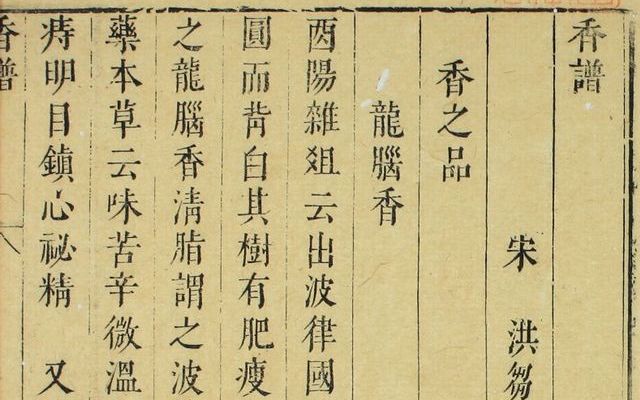 香譜
宋 洪芻
香之品
龍腦香
酉陽雜俎云出波律國
圓而背白其樹有肥瘦
之龍腦香清脂謂之波
藥本草云味苦辛微溫
痔明目鎮心祕精 又
香譜